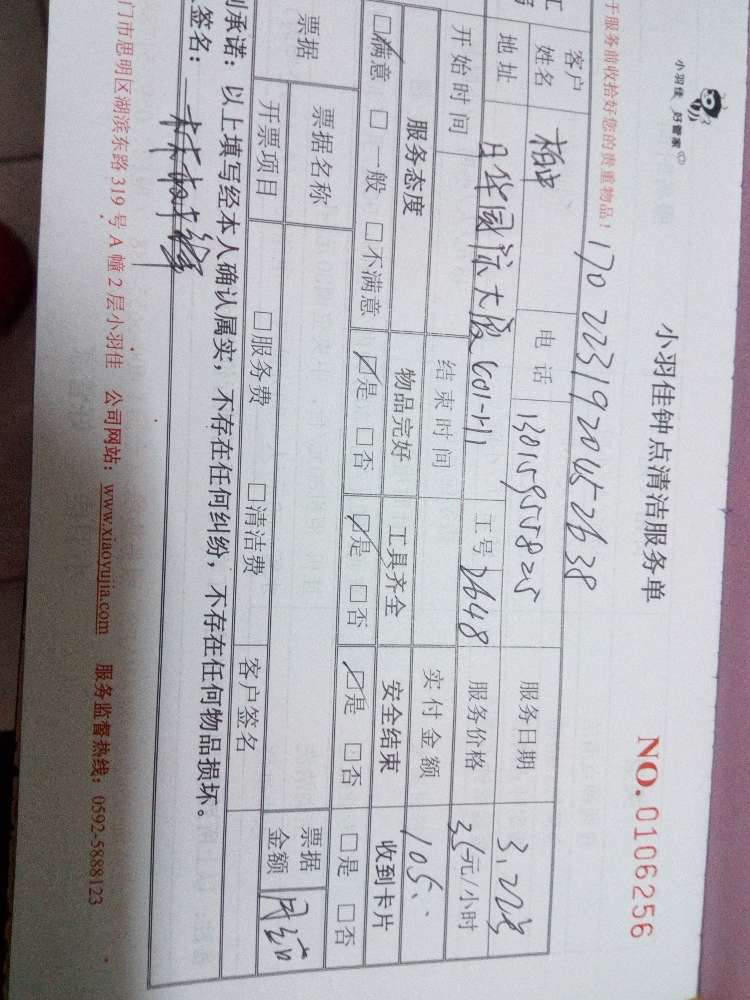 小羽佳 好管家
小羽佳钟点清洁服务单
NO. 0106256
于服务前收拾好您的贵重物品！
17022319204526 38
客户姓名 电话 13015955825 服务日期 3.22号
地址 日华国际大厦601-171 工号 2648 服务价格 35元/小时
开始时间 结束时间 实付金额 105.
服务态度 物品完好 工具齐全 安全结束 收到卡片
☑满意 □一般 □不满意 ☑是 □否 ☑是 □否 ☑是 □否 □是 □否
票据 票据名称 票据金额
开票项目 □服务费 □清洁费 客户签名
承诺：以上填写经本人确认属实，不存在任何纠纷，不存在任何物品损坏。
签名：
门市思明区湖滨东路319号A幢2层小羽佳 公司网站：www.xiaoyujia.com 服务监督热线：0592-5888123